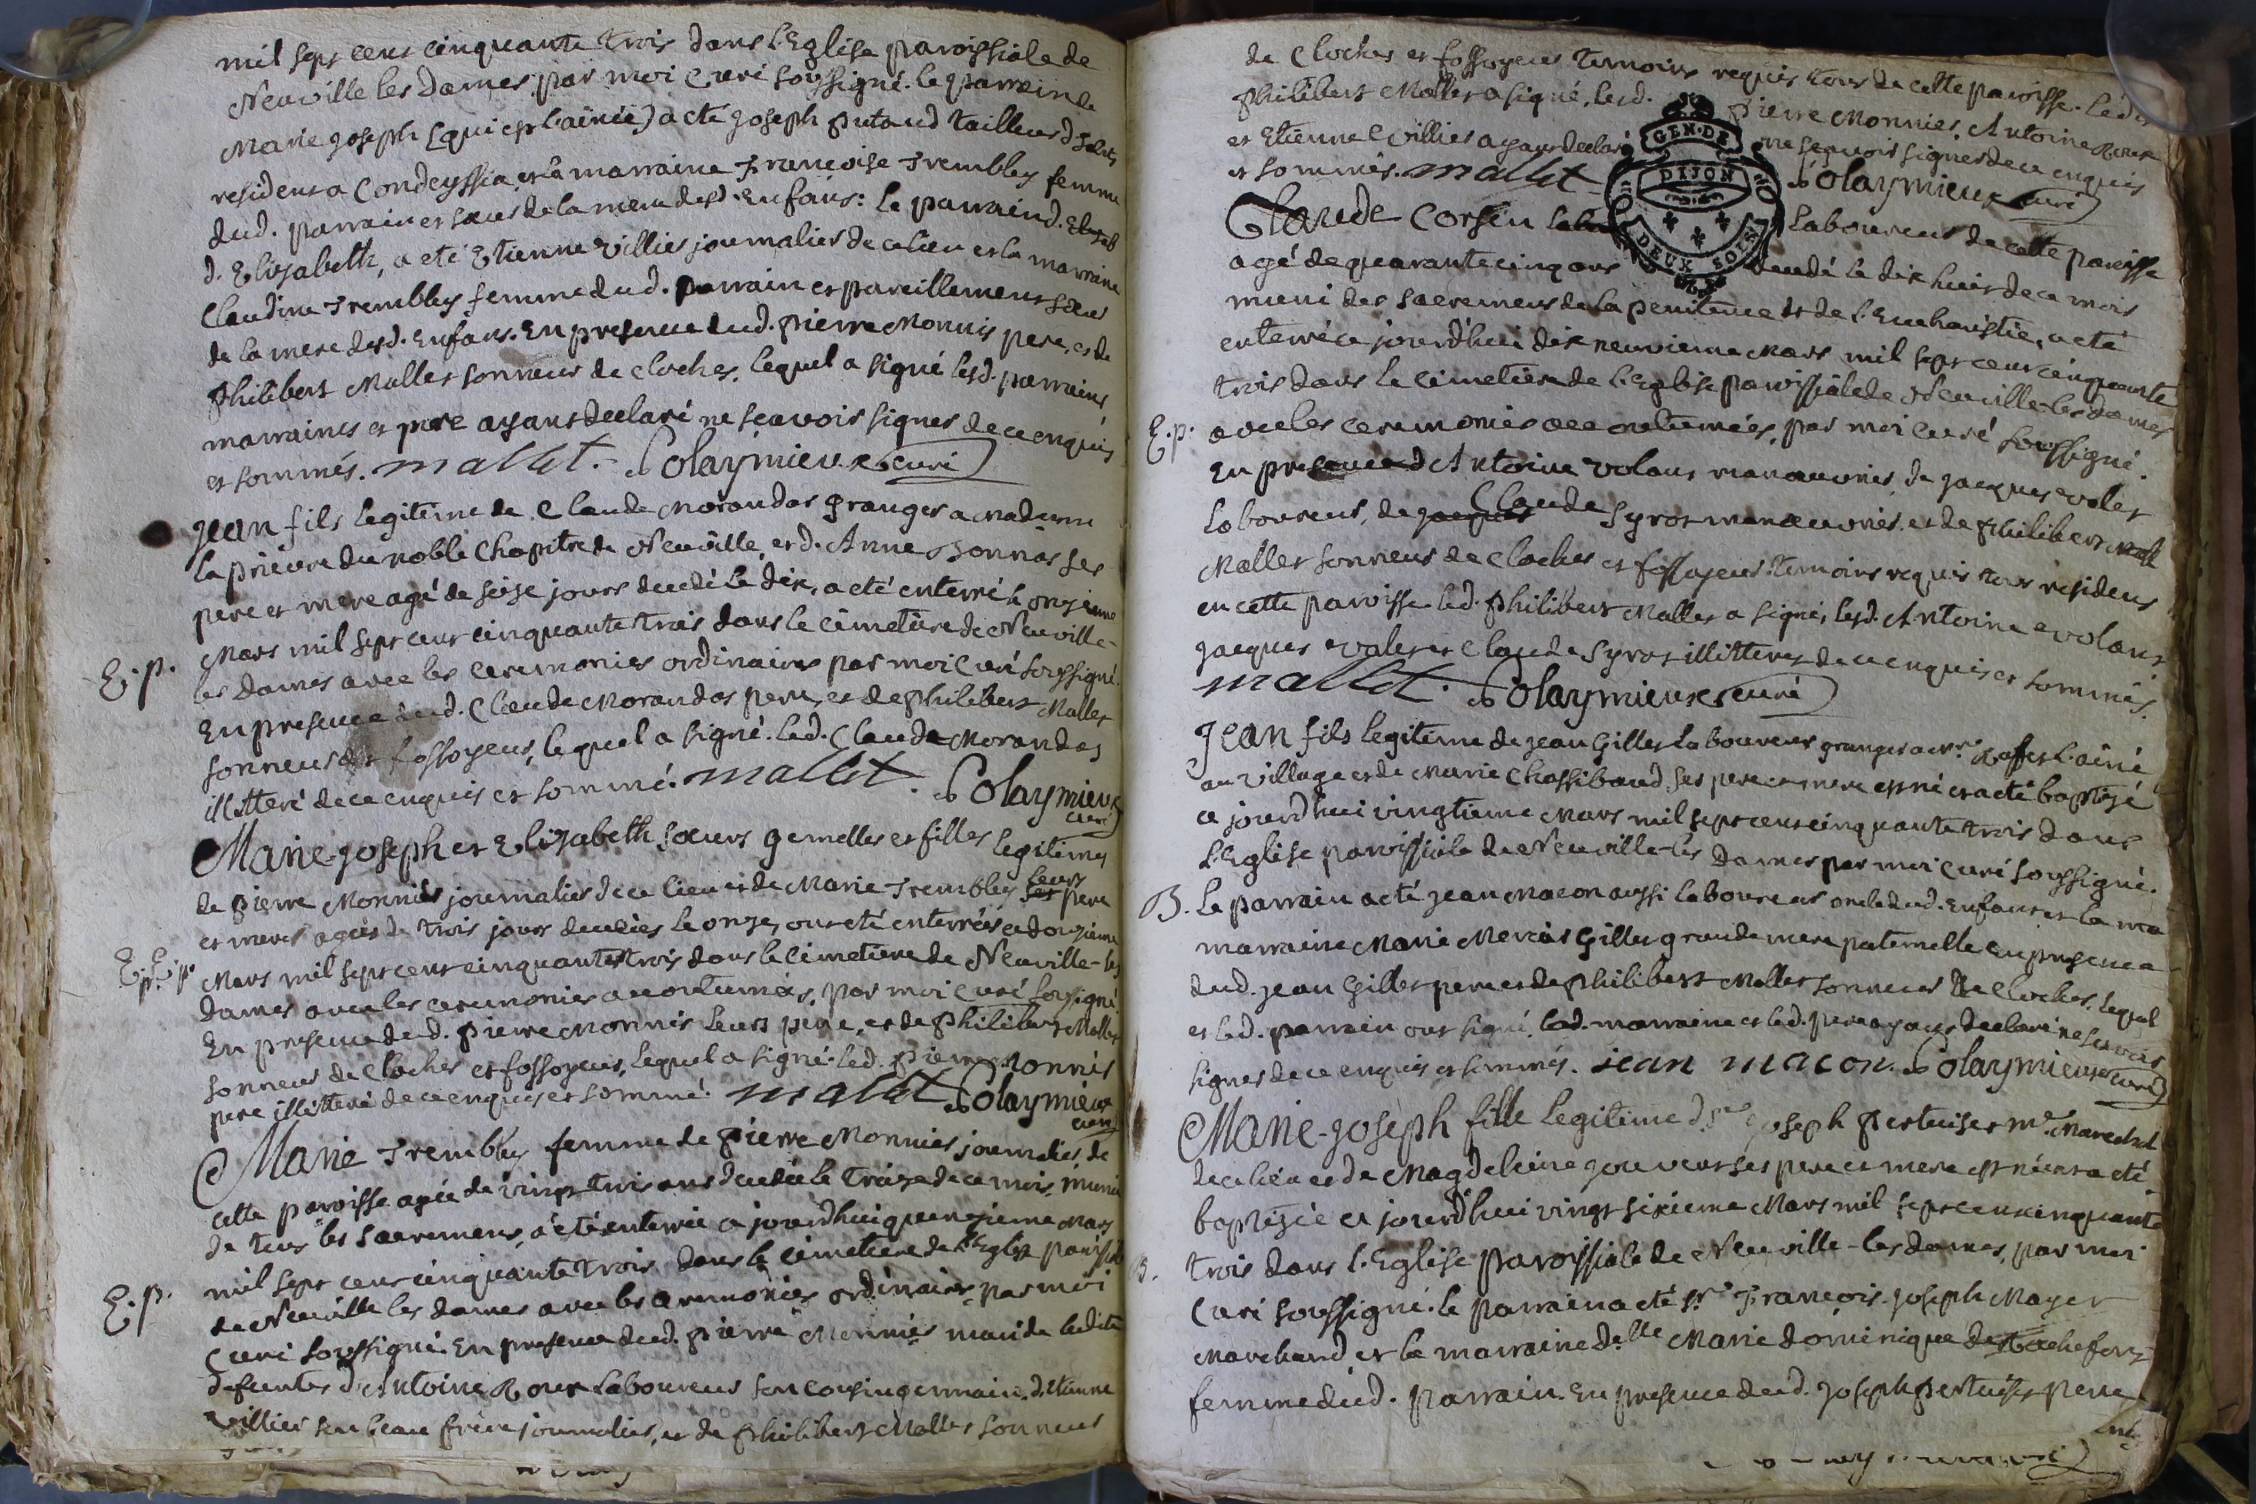 mil sept cent cinquante trois dans l'Eglise paroissiale de
Neuville les dames par moi Curé soussigné. le parrain de
Marie joseph (qui est l'ainée) a eté joseph putaud tailleur d'
resident a Condeyssia, et la marraine Francoise Trembley femme
dud. parrain et sœur de la mere desd. Enfans: Le parrain d. Elisab
d. Elizabeth, a eté Etienne Villier journalier de ce lieu et la marraine
Claudine Trembley femme dud. parrain et pareillement sœur
de la mere desd. Enfans. En presence dud. pierre Monnier pere, et de
Philibert Mallet sonneur de cloches, lequel a signé lesd. parrains
marraines et pere ayant declaré ne sçavoir signer de ce enquis
et sommés. mallet. Polaymieux curé
Jean fils legitime de Claude Morandas granger a Madame
la prieure du noble Chapitre de Neuville, et d. Anne ses
pere et mere agé de seise jours decedé le dix, a eté enterré le onzieme
Mars mil sept cent cinquante trois dans le cimetiere de Neuville-
E.p. les Dames avec les ceremonies ordinaires par moi Curé soussigné.
En presence dud. Claude Morandas pere, et de Philibert Mallet
sonneur et fossoyeur, lequel a signé. led. Claude Morandas
illitteré de ce enquis et sommé. mallet. Polaymieux
curé
Marie-joseph et Elizabeth sœurs gemelles et filles legitimes
de pierre Monnier journalier de ce lieu et de Marie Trembley leurs pere
et meres agées de trois jours decedées le onze, ont eté enterrées ce douzieme
E.p. E.p. Mars mil sept cent cinquante trois dans le cimetiere de Neuville-les
dames avec les ceremonies accoutumées, par moi Curé soussigné
En presence dud. pierre Monnier leurs pere, et de philibert Mallet
sonneur de cloches et fossoyeur, lequel a signé. led. pierre Monnier
pere illitteré de ce enquis et sommé. mallet Polaymieux
curé
Marie Trembley femme de pierre Monnier journalier de
cette paroisse agée de vingt trois ans decedée le treize de ce mois, munie
de tous les sacremens, a eté enterrée ce jourd'hui quatorzieme Mars
mil sept cent cinquante trois dans le cimetiere de l'Eglise paroissiale
E.p. de Neuville les dames avec les ceremonies ordinaires, par moi
Curé soussigné. En presence dud. pierre Monnier mari de ladite
defunte, d'Antoine Roux Laboureur son cousin germain, d. Etienne
Villier son beau frere journalier, et de Philibert Mallet sonneur
de Cloches et fossoyeur temoins requis tous de cette paroisse. led.
Philibert Mallet a signé, lesd. pierre Monnier, Antoine Roux
et Etienne Villier ayant declaré ne sçavoir signer de ce enquis
et sommés. mallet Polaymieux curé
GEN. DE
DIJON
DEUX SOLS
Claude Corsin Labou Laboureur de cette paroisse
agé de quarante cinq ans decedé le dix huit de ce mois
muni des sacremens de la penitence et de l'Eucharistie, a eté
enterré ce jourd'hui dix neuvieme Mars mil sept cent cinquante
trois dans le cimetiere de l'Eglise paroissiale de Neuville-les-dames
E.p. avec les ceremonies accoutumées, par moi curé soussigné.
En presence d'Antoine Volant manœuvrier, de jacques Volet
Laboureur, de jacques Claude Syrot manœuvrier, et de Philibert Mall
Mallet sonneur de Cloches et fossoyeur temoins requis tous residens
en cette paroisse led. Philibert Mallet a signé, lesd. Antoine Volant
jacques Volet et Claude Syrot illitterés de ce enquis et sommés.
mallet. Polaymieux curé
Jean fils legitime de jean Gillet Laboureur granger a Mr. l'ainé
au village et de Marie Chassibaud ses pere et mere est né et a eté baptizé
ce jourd'hui vingtieme Mars mil sept cent cinquante trois dans
L'Eglise paroissiale de Neuville-les dames par moi Curé soussigné.
B. Le parrain a eté jean Macon aussi laboureur oncle dud. enfant et la ma
marraine Marie Mercier Gillet grande mere paternelle en presence
dud. jean Gillet pere et de Philibert Mallet sonneur de Cloches, lequel
et led. parrain ont signé. lad. marraine et led. pere ayant declaré ne scavoir
signer de ce enquis et sommés. jean macon. Polaymieux curé
Marie-joseph fille Legitime d. Sr. joseph pertuiset me. Marechal
de ce lieu et de Magdeleine jouvent ses pere et mere est née et a eté
baptizée ce jourd'hui vingt sixieme Mars mil sept cent cinquante
B. trois dans l'Eglise paroissiale de Neuville-les dames, par moi
Curé soussigné. le parrain a eté Sr. François-joseph Mayet
Marchand, et la marraine d.lle Marie dominique de Rochefort
femme dud. parrain. En presence dud. joseph pertuiset pere